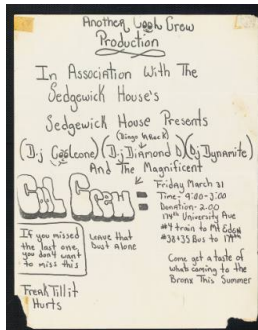 Another Cool Crew
Production
In Association With The
Sedgewick House's
Sedgewick House Presents
(Bingo
(D.j Cooleone) (D.j Diamond D) (D.j Dynamite)
And The Magnificent
Crew =
Friday March 31
Time- 9:00-3:00
Donation- 2.00
174th University Ave
#4 train to Mt Eden
#38+35 Bus to 174th
If you missed
the last one,
you don't want
to miss this
Leave that
bust alone
Come get a taste of
whats coming to the
Bronx This Summer
Freak Till it
Hurts